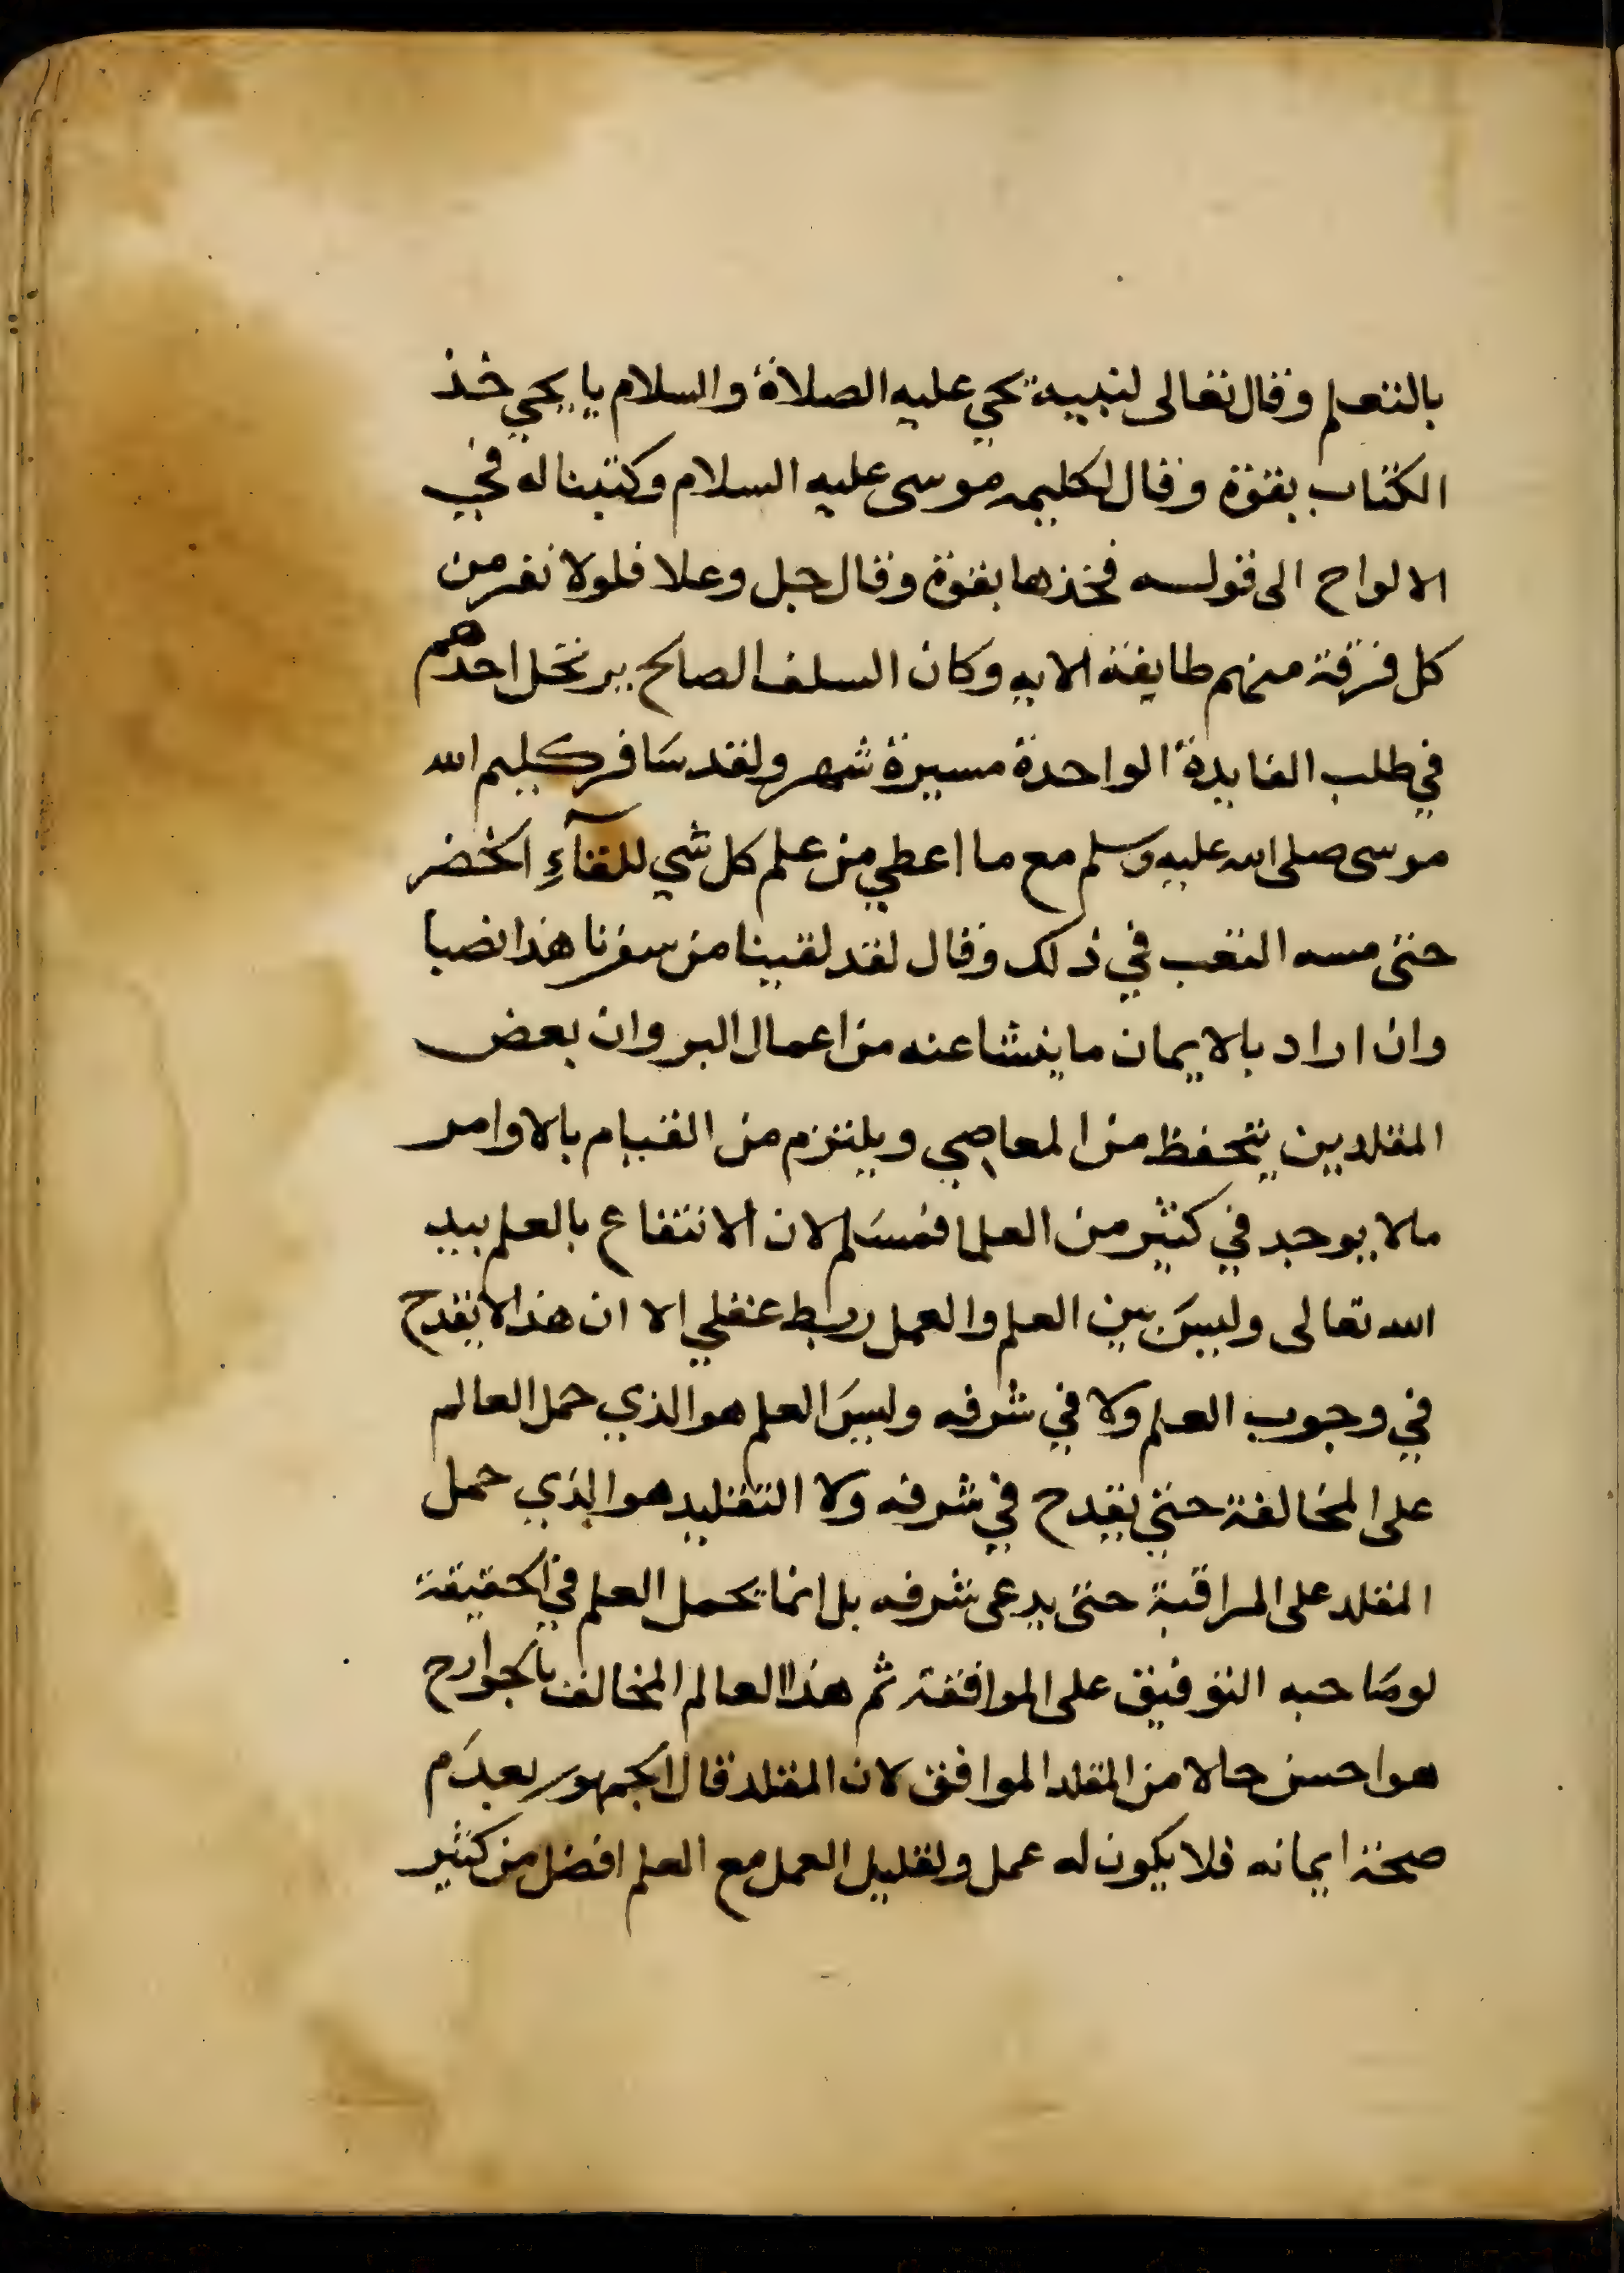 بالتعلم وقال تعالى لنبيه يحي عليه الصلاة والسلام يا يحي خذ
الكتاب بقوة وقال لكليمه موسى عليه السلام وكتبنا له في
الالواح الى قوله فخذها بقوة وقال جل وعلا فلولا نفر من
كل فرقة منهم طايفة الايه وكان السلف الصالح يرتحل احدهم
في طلب الفايدة الواحدة مسيرة شهر ولقد سَافر كليم الله
موسى صلى الله عليه وسلم مع ما اعطي من علم كل شي للقآءِ الخضر
حتى مسه التعب في ذلك وقال لقد لقينا من سفرنا هذا نصبا
وان اراد بالايمان ما ينشا عنه من اعمال البر وان بعض
المقلدين يتحفظ من المعاصي ويلتزم من القيام بالاوامر
مالا يوجد في كثير من العلما فمسَلم لان الانتفاع بالعلم بيد
الله تعالى وليسَ بين العلم والعمل ربط عقلي الا ان هذا لا يقدح
في وجوب العلم ولا في شرفه وليسَ العلم هو الذي حمل العالم
على المخالفة حتى يقدح في شرفه ولا التقليد هو الذي حمل
المقلد على المراقبة حتى يدعى شرفه بل انما يحمل العلم في الحقيقة
لو صَاحبه التوفيق على الموافقة ثم هذا العالم المخالف بالجوارح
هو احسن حالا من المقلد الموافق لان المقلد قال الجمهور بعدَم
صحة ايمانه فلا يكون له عمل ولقليل العمل مع العلم افضل من كثير